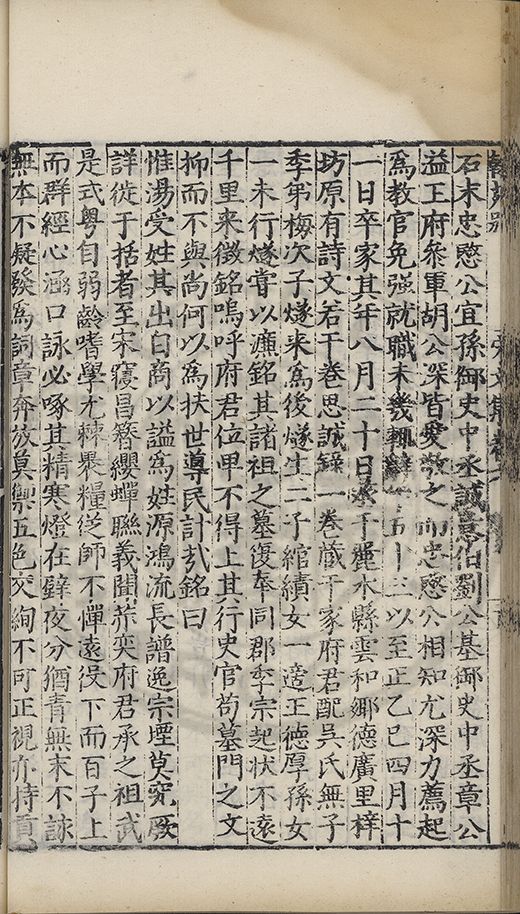 石末忠愍公宜孫御史中丞誠意伯劉公基御史中丞章公
益王府叅軍胡公深皆愛敬之而忠愍公相知尤深力薦起
爲教官免强就職未幾輒辭年五十三以至正乙巳四月十
一日卒家其年八月二十日𦵏于麗水縣雲和鄉德廣里梓
坊原有詩文若干巻思誠錄一巻蔵于家府君配吳氏無子
季弟梅次子燧来爲後燧生二子綰績女一適王德厚孫女
一未行燧甞以濂銘其諸祖之墓復奉同郡季宗起状不逺
千里来徴銘嗚呼府君位卑不得上其行史官苟墓門之文
抑而不與尚何以爲扶世導民計㢤銘曰
惟湯受姓其出自商以謚爲姓源鴻流長譜逸宗堙莫究厥
詳徙于括者至宋寖昌簪纓蟬聮義聞赤奕府君承之祖武
是式粤自弱齡嗜學尤棘褁糧従師不憚遠役下而百子上
而群經心涵口詠必啄其精寒燈在壁夜分猶青無末不諒
無本不凝發爲詞章奔放莫禦五色交絢不可正視亦持貢